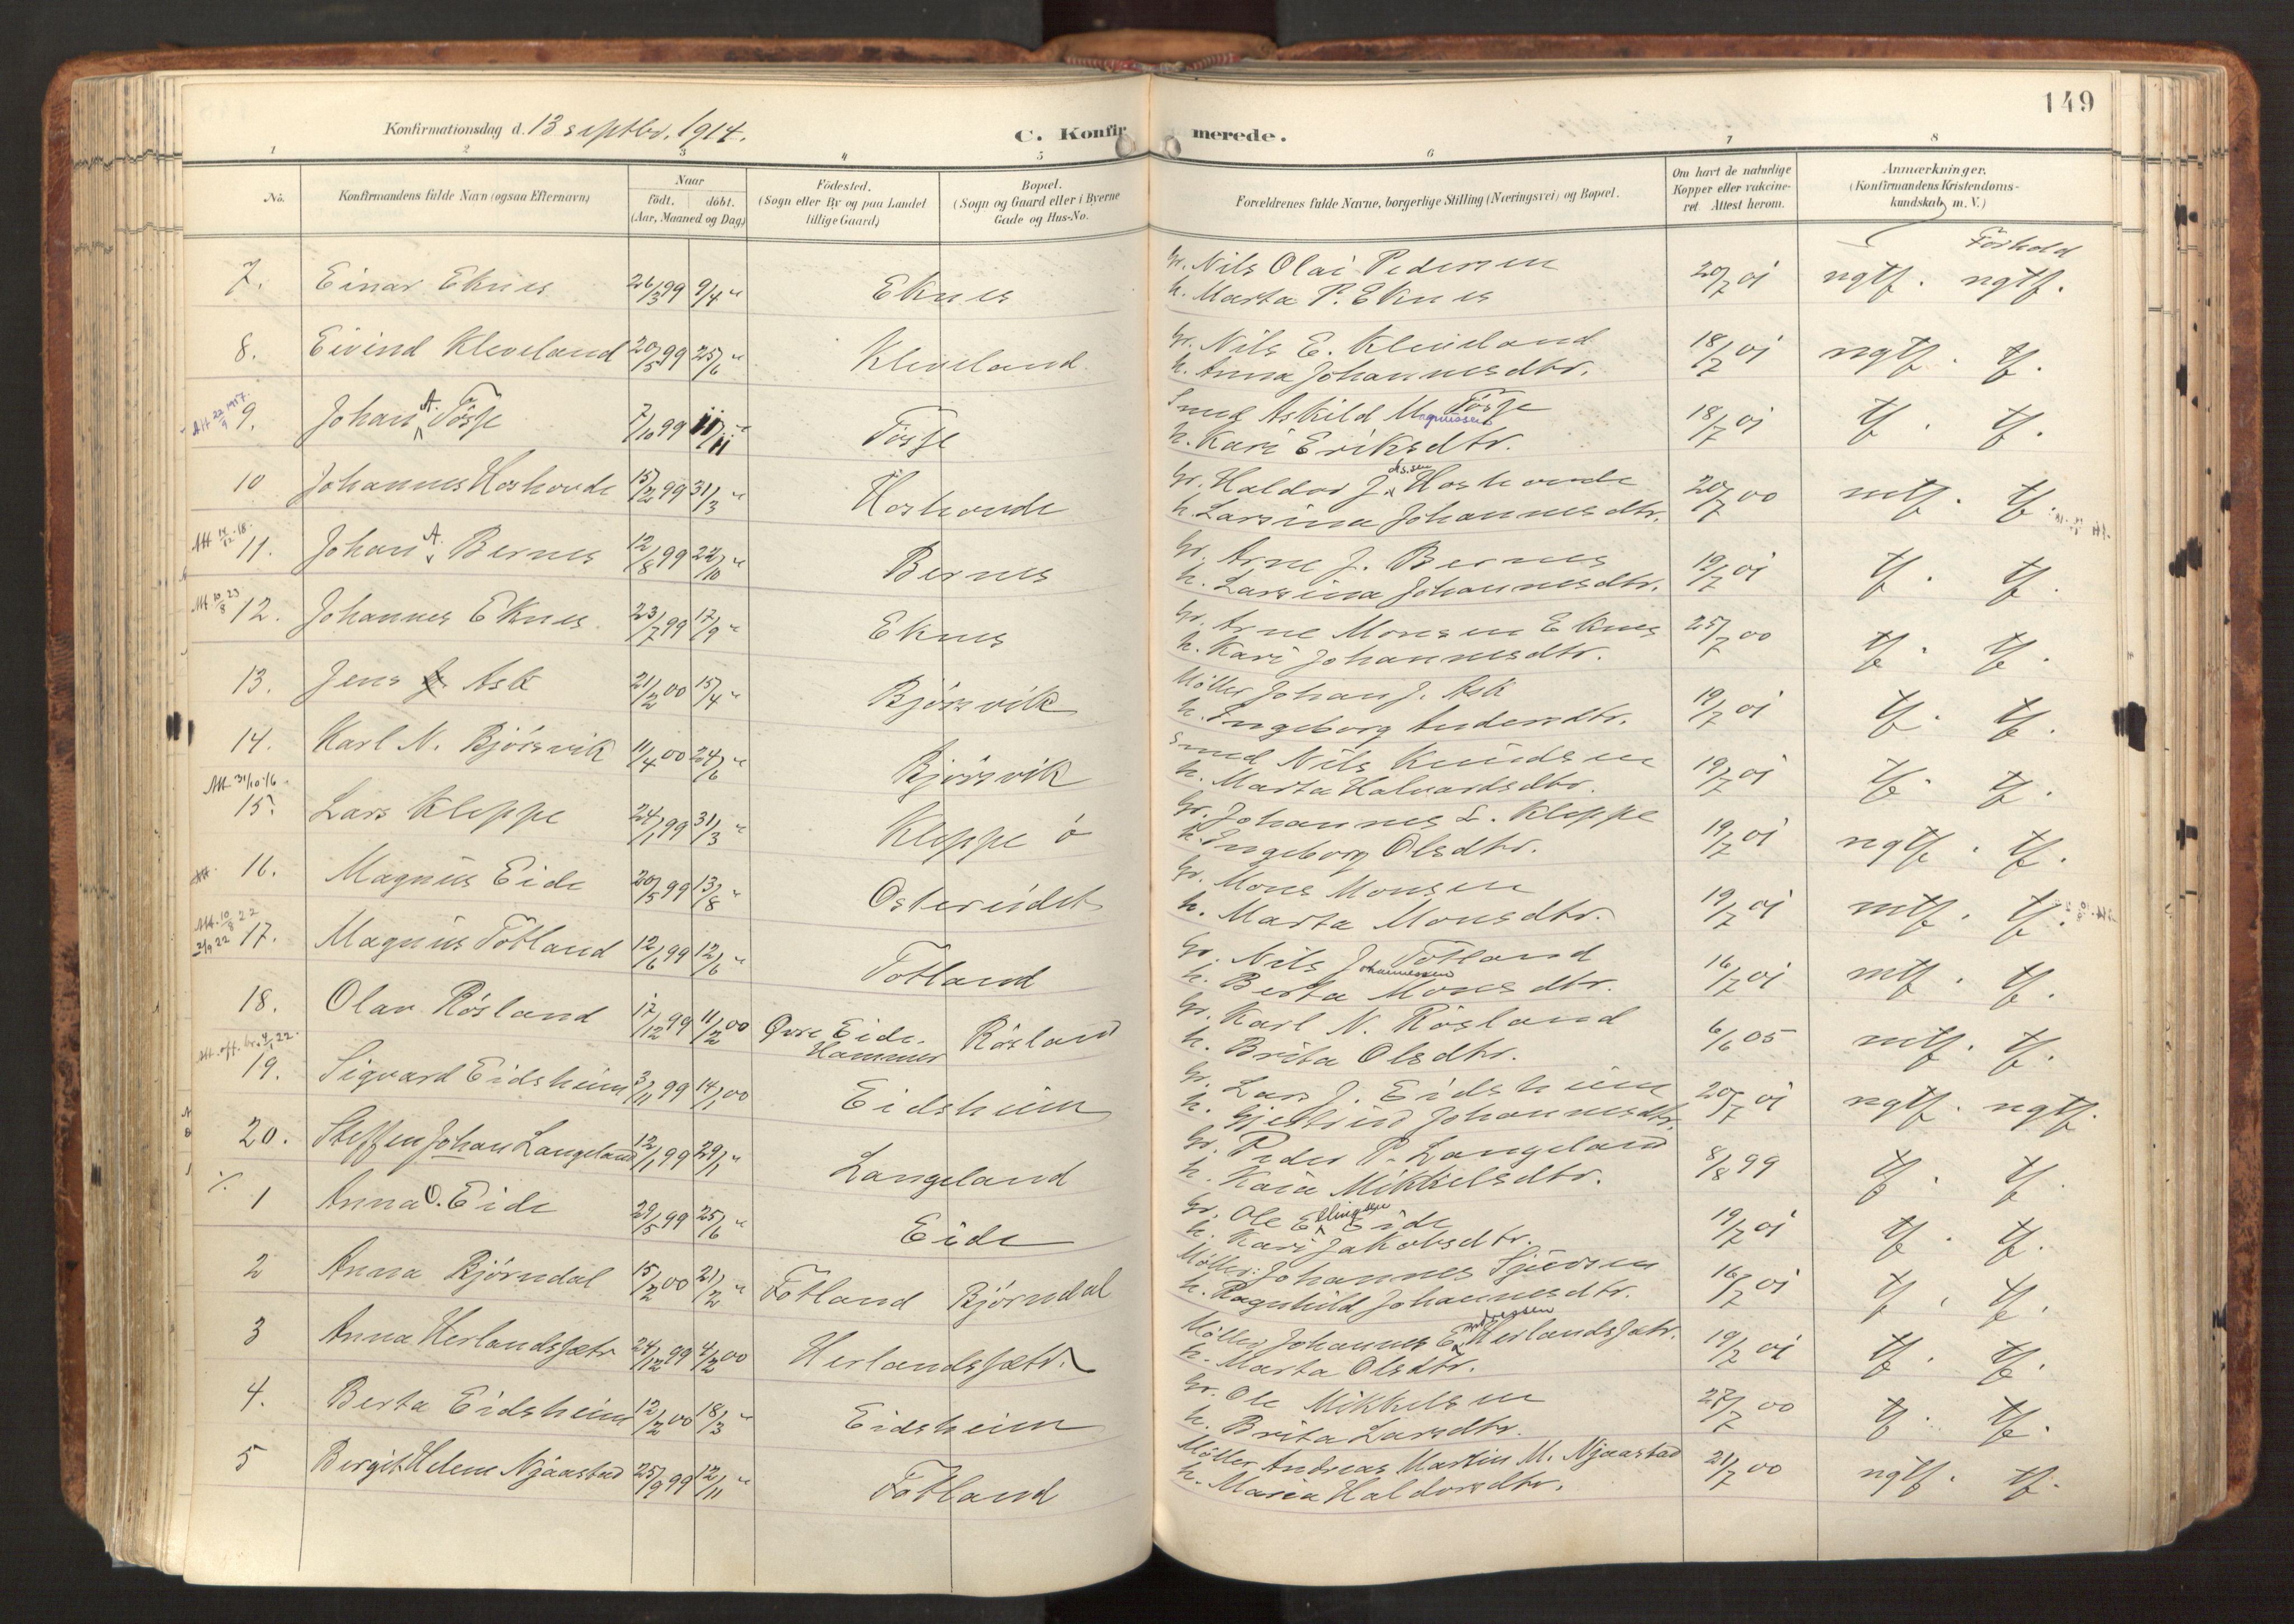 149
Konfirmationsdag d. 13 septbr. 1914.
C. Konfirmerede.
1 2 3 4 5 6 7 8
No. Konfirmandens fulde Navn (ogsaa Efternavn) Naar Fødested. Bopæl. Forældrenes fulde Navne, borgerlige Stilling (Næringsvei) og Bopæl. Om havt de naturlige Anmærkninger.
født. døbt. (Sogn eller By og paa Landet (Sogn og Gaard eller i Byerne Kopper eller vakcine- (Konfirmandens Kristendoms-
(Aar, Maaned og Dag) tillige Gaard) Gade og Hus-No. ret Attest herom. kundskab m. V.)
Forhold
7. Einar Eknes 26/3 99 9/4 " Eknes Gr. Nils Olai Pedersen 20/7 01 ngtf. ngtf.
h. Marta P. Eknes
8. Eivind Kleveland 20/5 99 25/6 " Kleveland Gr. Nils E. Kleveland 18/7 01 ngtf. tf.
h. Anna Johannesdtr.
Att 22/9 1957. 9. Johan A. Tösse 7/10 99 11/11 " Tösse Smed Askild Magnussen Tösse 18/7 01 tf. tf.
h. Kari Eriksdtr.
10 Johannes Hoshovde 15/2 99 31/3 " Hoshovde Gr. Haldor J. Hoshovde 20/7 00 mtf. tf.
h. Larsina Johannesdtr.
Att 14/12 18. 11. Johan A. Bernes 12/8 99 22/10 " Bernes Gr. Arne J. Bernes 19/7 01 tf. tf.
h. Larsina Johannesdtr.
Att 10/8 23 12. Johannes Eknes 23/7 99 17/9 " Eknes Gr. Arne Monsen Eknes 25/7 00 tf. tf.
h. Kari Johannesdtr.
13. Jens J. Ask 21/2 00 15/4 " Björsvik Möller Johan J. Ask 19/7 01 tf. tf.
h. Ingeborg Andersdtr.
14. Karl N. Björsvik 11/4 00 24/6 " Björsvik Smed Nils Knudsen 19/7 01 tf. tf.
h. Marta Halvardsdtr.
Att 31/10-16
15. Lars Kleppe 24/1 99 31/3 " Kleppe ö Gr. Johannes L. Kleppe 19/7 01 ngtf. tf.
h. Ingeborg Olsdtr.
Att. 16. Magnus Eide 20/5 99 13/8 " Ostereidet Gr. Mons Monsen 19/7 01 mtf. tf.
h. Marta Monsdtr.
Att. 10/8 22
2/9 22 17. Magnus Totland 12/6 99 12/6 " Totland Gr. Nils Johannessen Totland 16/7 01 mtf. tf.
h. Berta Monsdtr.
18. Olav Rösland 17/12 99 11/2 00 Øvre Eide, Hammer Rösland Gr. Karl N. Rösland 6/6 05 mtf. tf.
h. Brita Olsdtr.
19. Sigvard Eidsheim 3/11 99 14/1 00 Eidsheim Gr. Lars J. Eidsheim 20/7 01 ngtf. ngtf.
h. Gjertrud Johannesdtr.
20. Steffen Johan Langeland 12/1 99 29/1 " Langeland Gr. Peder P. Langeland 8/8 99 tf. tf.
h. Kaia Mikkelsdtr.
1 Anna O. Eide 29/5 99 25/6 " Eide Gr. Ole Ellingsen Eide 19/7 01 tf. tf.
h. Kari Jakobsdtr.
2 Anna Björndal 15/2 00 21/2 " Totland Björndal Möller: Johannes Sjursen 16/7 01 tf. tf.
h. Ragnhild Johannesdtr.
3 Anna Herlandssætr 24/12 99 4/2 00 Herlandssætr. Möller Johannes E. Herlandssætr. 19/7 01 tf. tf.
h. Marta Olsdtr.
4. Berta Eidsheim 12/2 00 18/3 " Eidsheim Gr. Ole Mikkelsen 27/7 00 tf. tf.
h. Brita Larsdtr.
5 Bergit Helene Njaastad 25/9 99 12/11 " Totland Möller Andreas Martin M. Njaastad 21/7 00 ngtf. tf.
h. Maria Haldorsdtr.